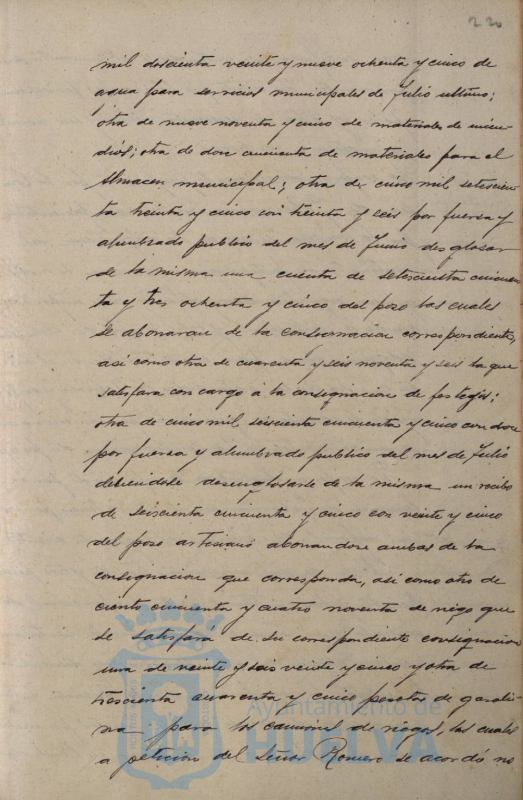 220
mil doscienta veinte y nueve ochenta y cinco de
agua para servicios municipales de Julio ultimo;
otra de nueve noventa y cinco de materiales de incen-
dios; otra de doce cincuenta de materiales para el
Almacen municipal; otra de cinco mil setescien-
ta treinta y cinco con treinta y seis por fuerza y
alumbrado publico del mes de Junio desglosar
de la misma una cuenta de setescienta cincuen
ta y tres ochenta y cinco del pozo las cuales
se abonaran de la consignacion correspondiente,
así como otra de cuarenta y seis noventa y seis la que
satisfara con cargo á la consignacion de festejos;
otra de cinco mil seiscienta cincuenta y cinco con doce
por fuerza y alumbrado publico del mes de Julio
debiendose desenglosarse de la misma un recibo
de seiscienta cincuenta y cinco con veinte y cinco
del pozo artesiano abonandose ambas de la
consignacion que corresponda, así como otro de
ciento cincuenta y cuatro noventa de riego que
se satisfará de su correspondiente consignacion
una de veinte y seis veinte y cinco y otra de
trescienta cuarenta y cinco pesetas de gasoli-
na para los camiones de riegos, las cuales
a petición del señor Romero se acordó no
Ayuntamiento de
HUELVA